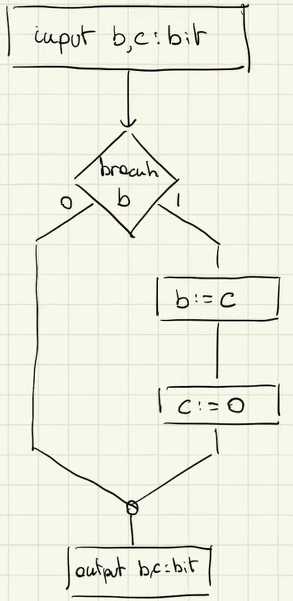 input b,c:bit
branch
0 b 1
b:=c
c:=0
output b,c:bit